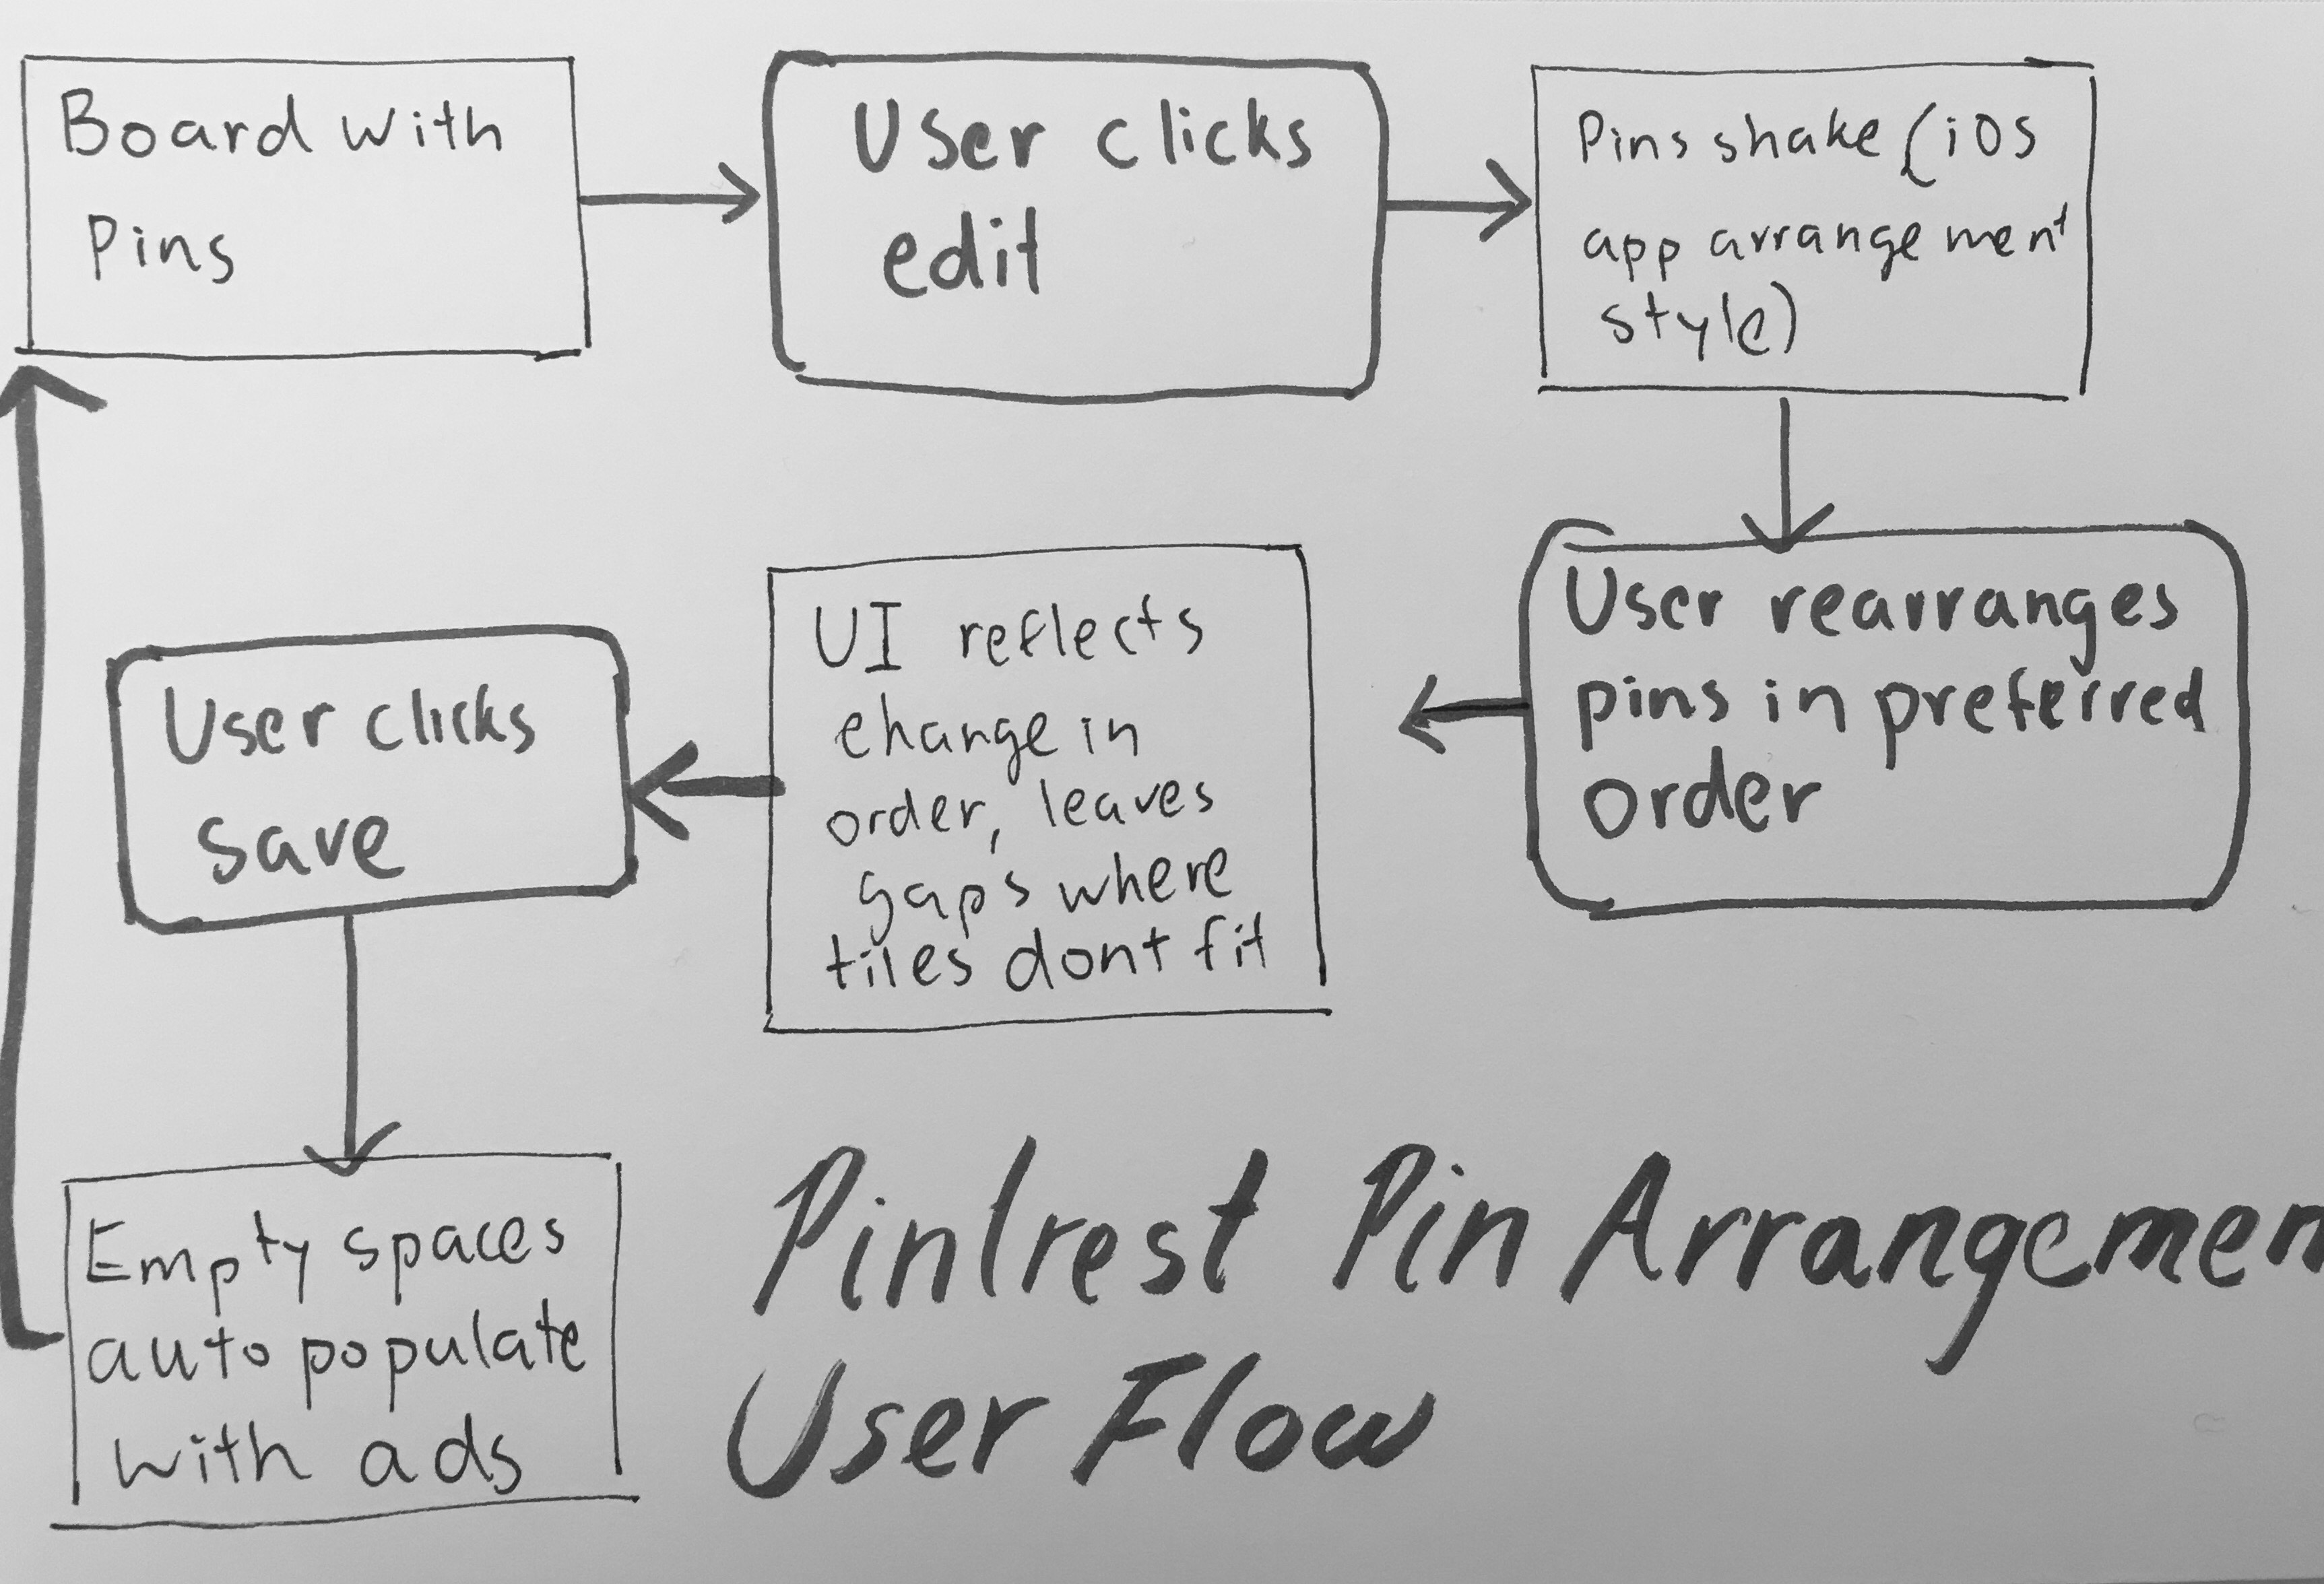 Board with
Pins
User clicks
edit
Pins shake (iOS
app arrangement
style)
User rearranges
pins in preferred
order
UI reflects
change in
order, leaves
gaps where
tiles dont fit
User clicks
save
Empty spaces
auto populate
with ads
Pintrest Pin Arrangemen
User Flow